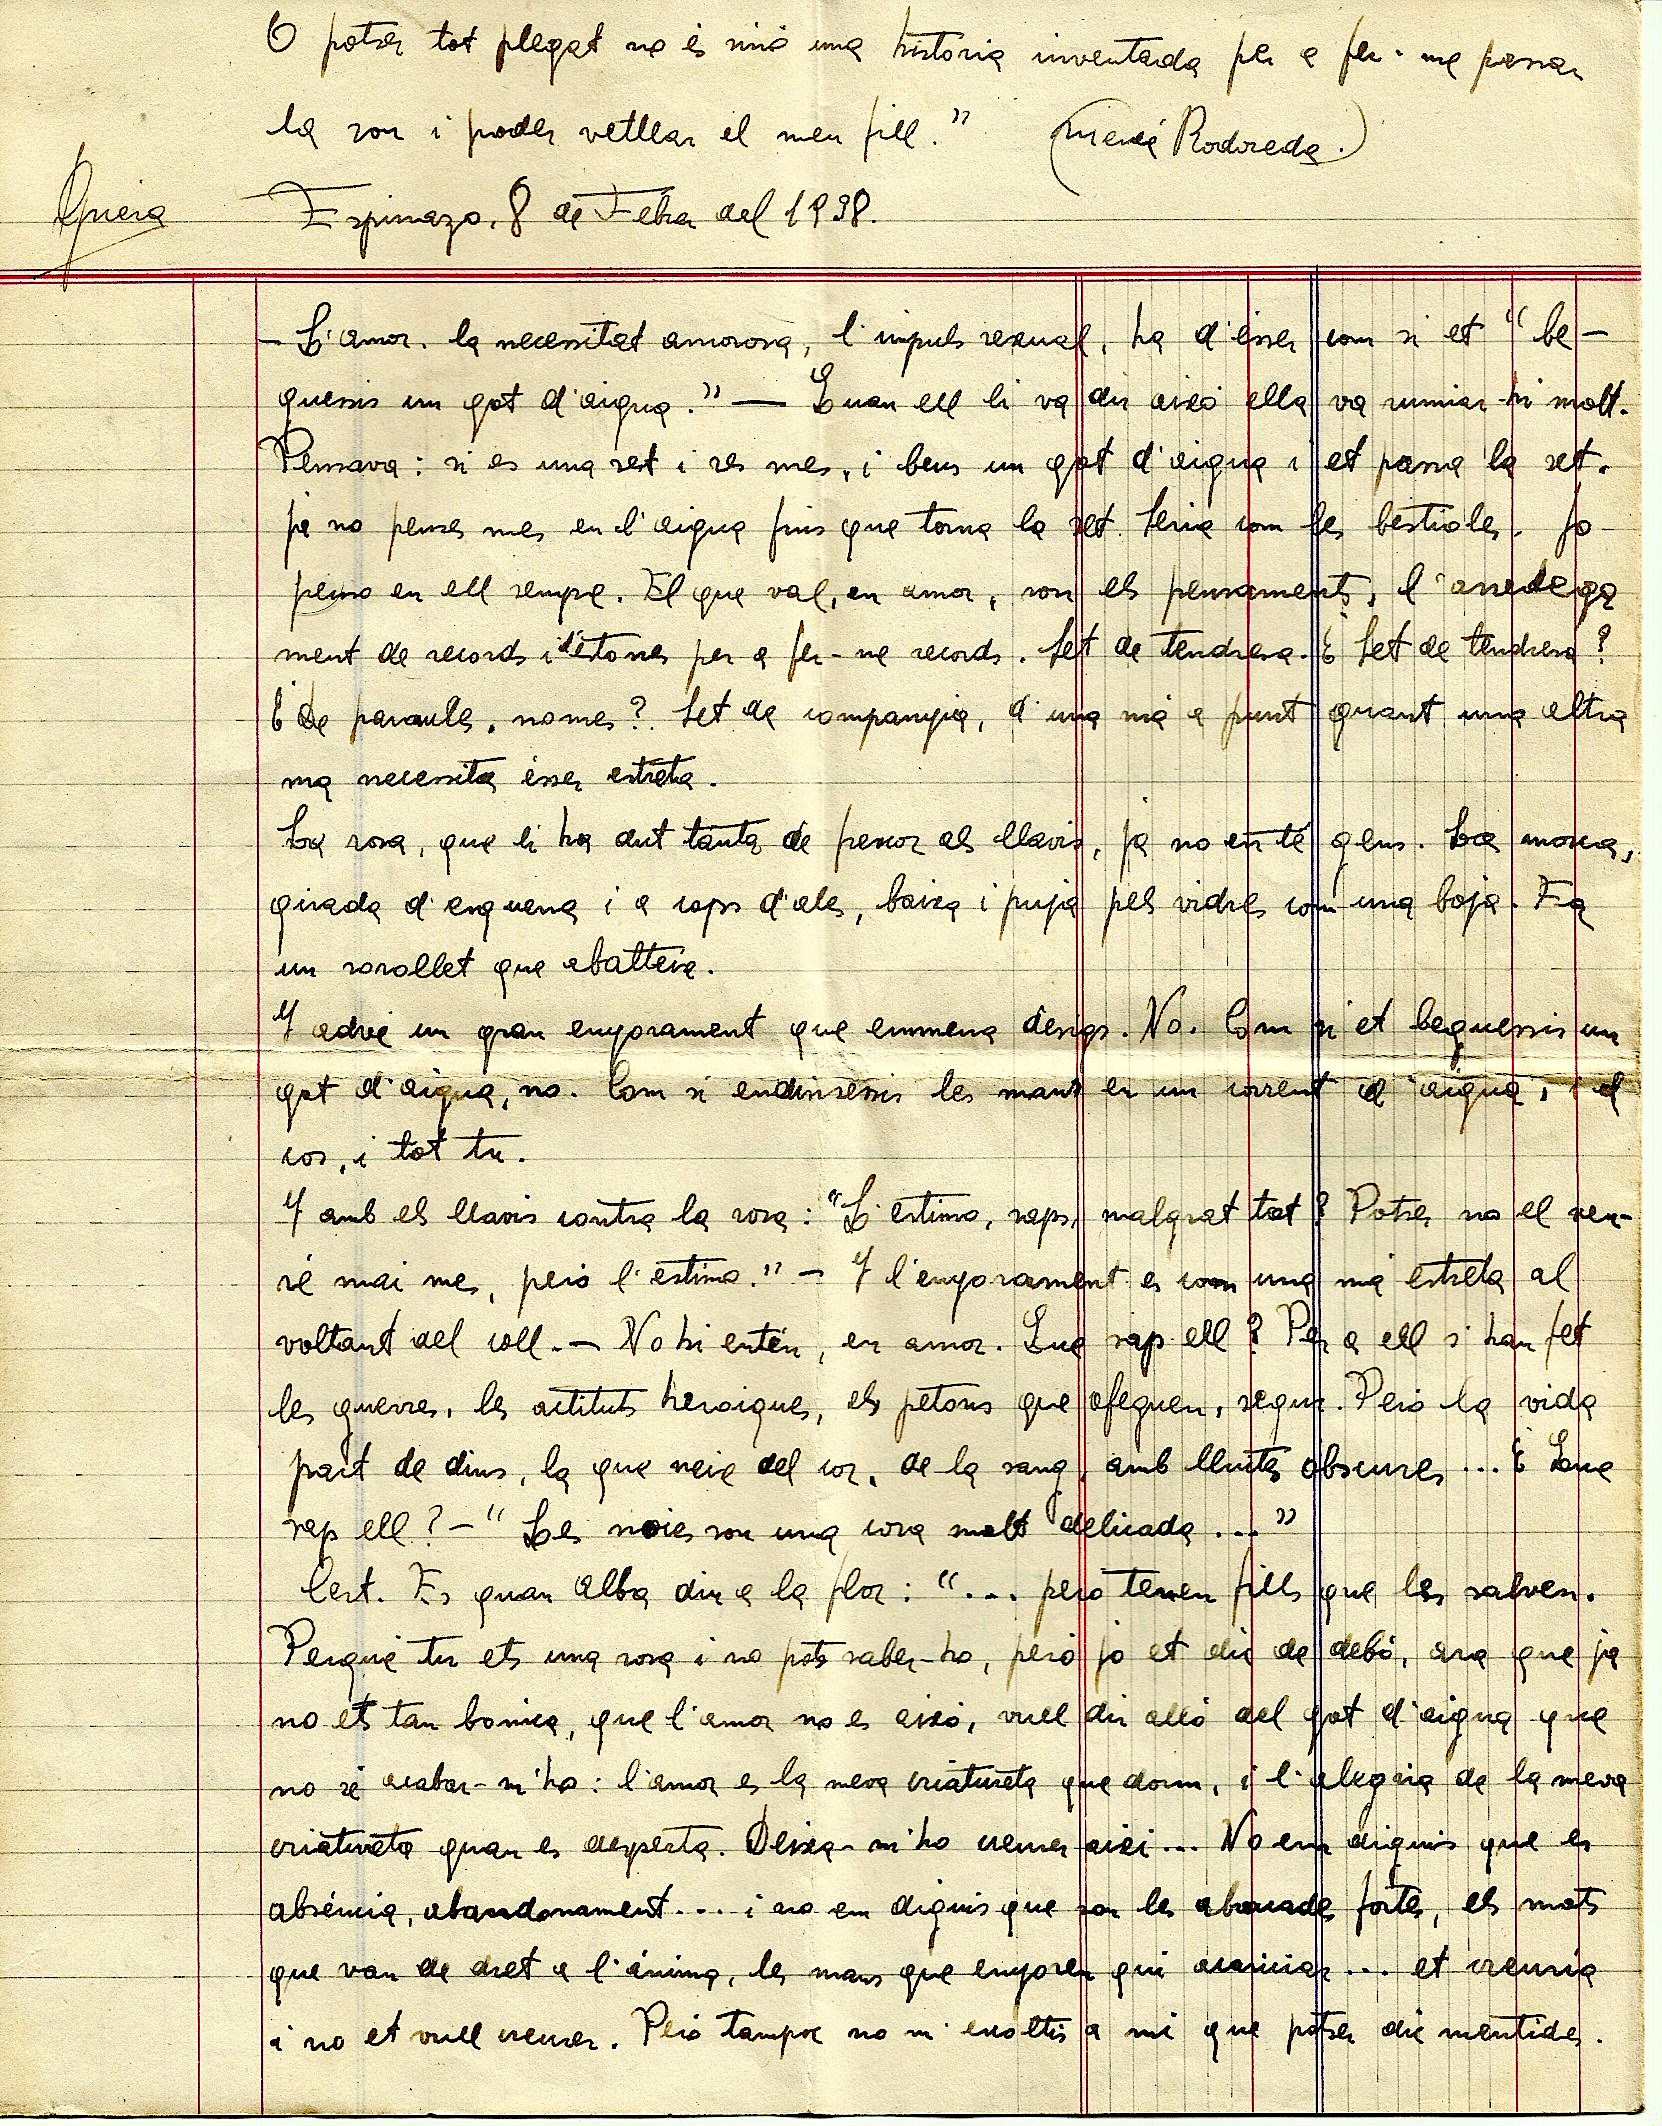 O potser tot plegat no és sinó una història inventada per a fer-me passar
la son i poder vetllar el meu fill." (Mercé Rodoreda.)
Espinazo, 8 de Febrer del 1938.
- L'amor. la necessitat amorosa, l'impuls sexual, ha d'ésser com si et "be-
guessis un got d'aigua." — Quan ell li va dir aixó ella va rumiar-hi molt.
Pensava: si es una set i res mes, i beus un got d'aigua i et passa la set.
ja no penses mes en l'aigua fins que torna la set. Seria com les bestioles. Jo
penso en ell sempre. El que val, en amor, son els pensaments, l'arredega
ment de records i d'estones per a fer-ne records. Set de tendresa. ¿ Set de tendresa?
¿ De paraules, nomes? Set de companyia, d'una má a punt quant una altra
ma necessita ésser estreta.
La rosa, que li ha dut tanta de frescor als llavis, ja no en té gens. La mosca,
girada d'esquena i a cops d'ales, baixa i puja pels vidres com una boja. Fa
un sorollet que abalteix.
Y advé un gran enyorament que emmena desigs. No. Com si et beguessis un
got d'aigua, no. Com si endinsessis les mans en un corrent d'aigua, i el
cos, i tot tu.
Y amb els llavis contra la rosa: "L'estimo, saps, malgrat tot? Potser no el veu-
ré mai mes, peró l'estimo." - Y l'enyorament es com una má estreta al
voltant del coll. - No hi entén, en amor. Que sap ell? Per a ell s'han fet
les guerres, les actituts heroiques, els petons que ofeguen, segur. Peró la vida
part de dins, la que neix del cor, de la sang, amb lluites obscures ... ¿ Que
sap ell? - " Les noies son una cosa molt delicada ... "
Cert. Es quan Alba diu a la flor: "... peró tenen fills que les salven.
Perque tu ets una rosa i no pots saber-ho, peró jo et dic de debó, ara que ja
no ets tan bonica, que l'amor no es aixó, vull dir alló del got d'aigua que
no sé acabar-m'ho: l'amor es la meva criatureta que dorm, i l'alegria de la meva
criatureta quan es desperta. Deixa-m'ho creure aixi ... No em diguis que es
absència, abandonament .... i no em diguis que son les abraçades fortes, els mots
que van de dret a l'ánima, les mans que enyoren qui acariciar ... et creuria
i no et vull creure. Peró tampoc no m'escoltis a mi que potser dic mentides.